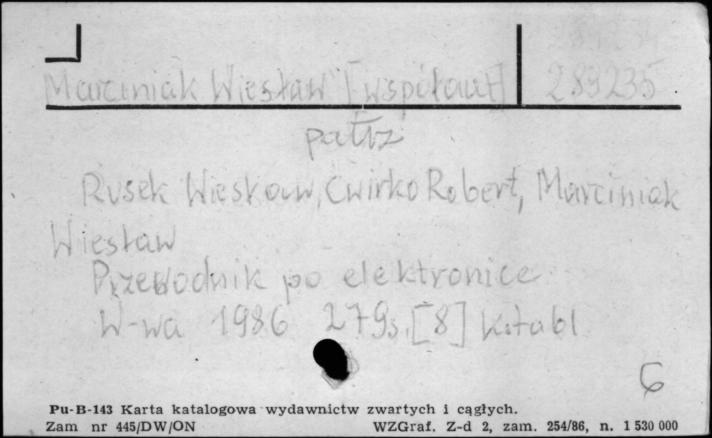 Marciniak Wiesław [współaut] 289235
patrz
Rusek Wiesław, Ćwirko Robert, Marciniak
Wiesław
Przewodnik po elektronice
W-wa 1986 279s. [8] k.tabl
6
Pu-B-143 Karta katalogowa wydawnictw zwartych i cągłych.
Zam nr 445/DW/ON WZGraf. Z-d 2, zam. 254/86, n. 1 530 000